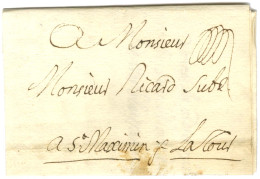 A Monsieur
Monsieur Ricard Subt
A St Maximin p La Cour